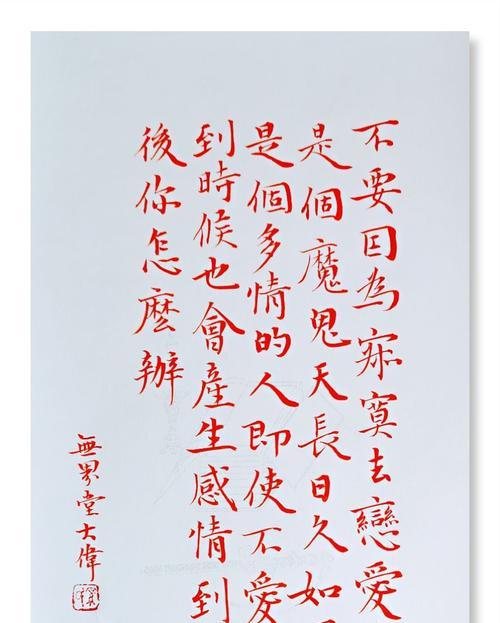 不要因為寂寞去戀愛
是個魔鬼天長日久如
是個多情的人即使不愛
到時候也會產生感情到
後你怎麼辦
無界堂大偉